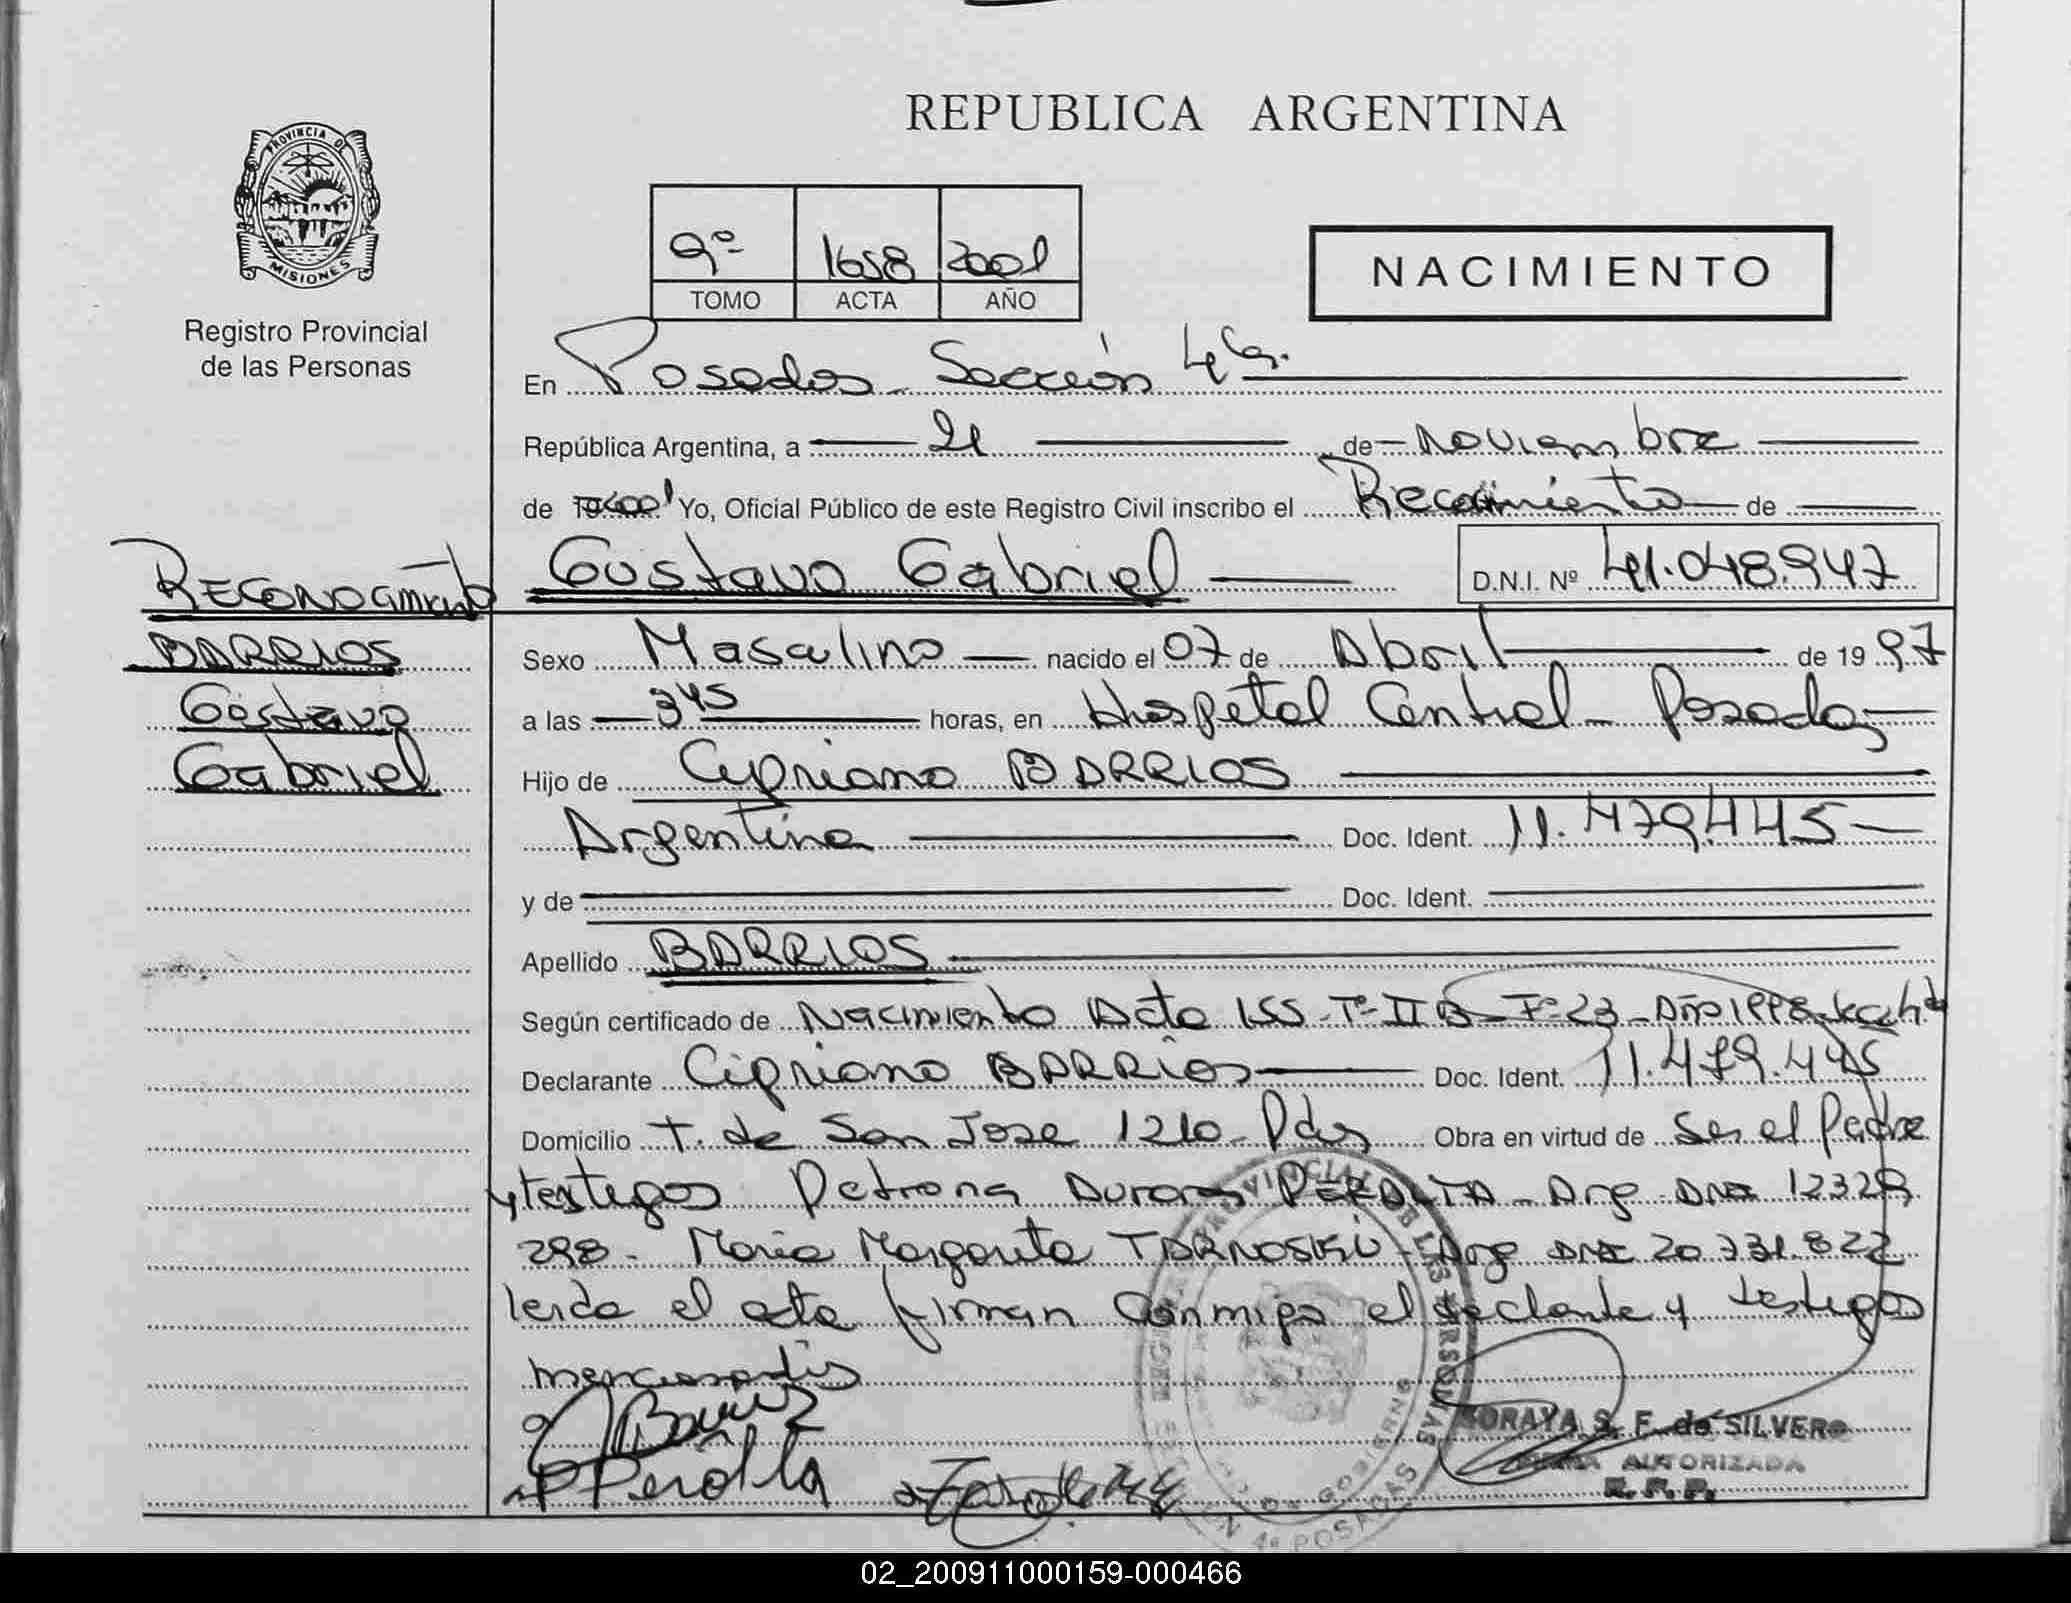 REPUBLICA ARGENTINA
PROVINCIA DE
MISIONES
Registro Provincial
de las Personas
9º 1658 2001
TOMO ACTA AÑO
NACIMIENTO
En Posadas Sección 4ta.
República Argentina, a 21 de Noviembre
de 2001 Yo, Oficial Público de este Registro Civil inscribo el de
Gustavo Gabriel D.N.I. Nº 41.048.947
Reconocimiento
BARRIOS
Gustavo
Gabriel
Sexo Masculino nacido el 07 de Abril de 1997
a las 3 45 horas, en Hospital Central - Posadas
Hijo de Cipriano BARRIOS
Argentina Doc. Ident. 11.479.445
y de Doc. Ident.
Apellido BARRIOS
Según certificado de Nacimiento Acta 155 - Tº II B - Fº 23 - Año 1998
Declarante Cipriano BARRIOS Doc. Ident. 11.479.445
Domicilio T. de San Jose 1210 - Pdas Obra en virtud de Ser el Padre
y testigos Petrona Aurora PERALTA - Arg - DNI 12329
298 - Maria Margarita TARNOSKI - Arg DNI 20.731.822
leida el acta firman conmigo el declante y testigos
mencionados
P Peralta
SORAYA S. F. de SILVERO
FIRMA AUTORIZADA
R. P. P.
02_200911000159-000466